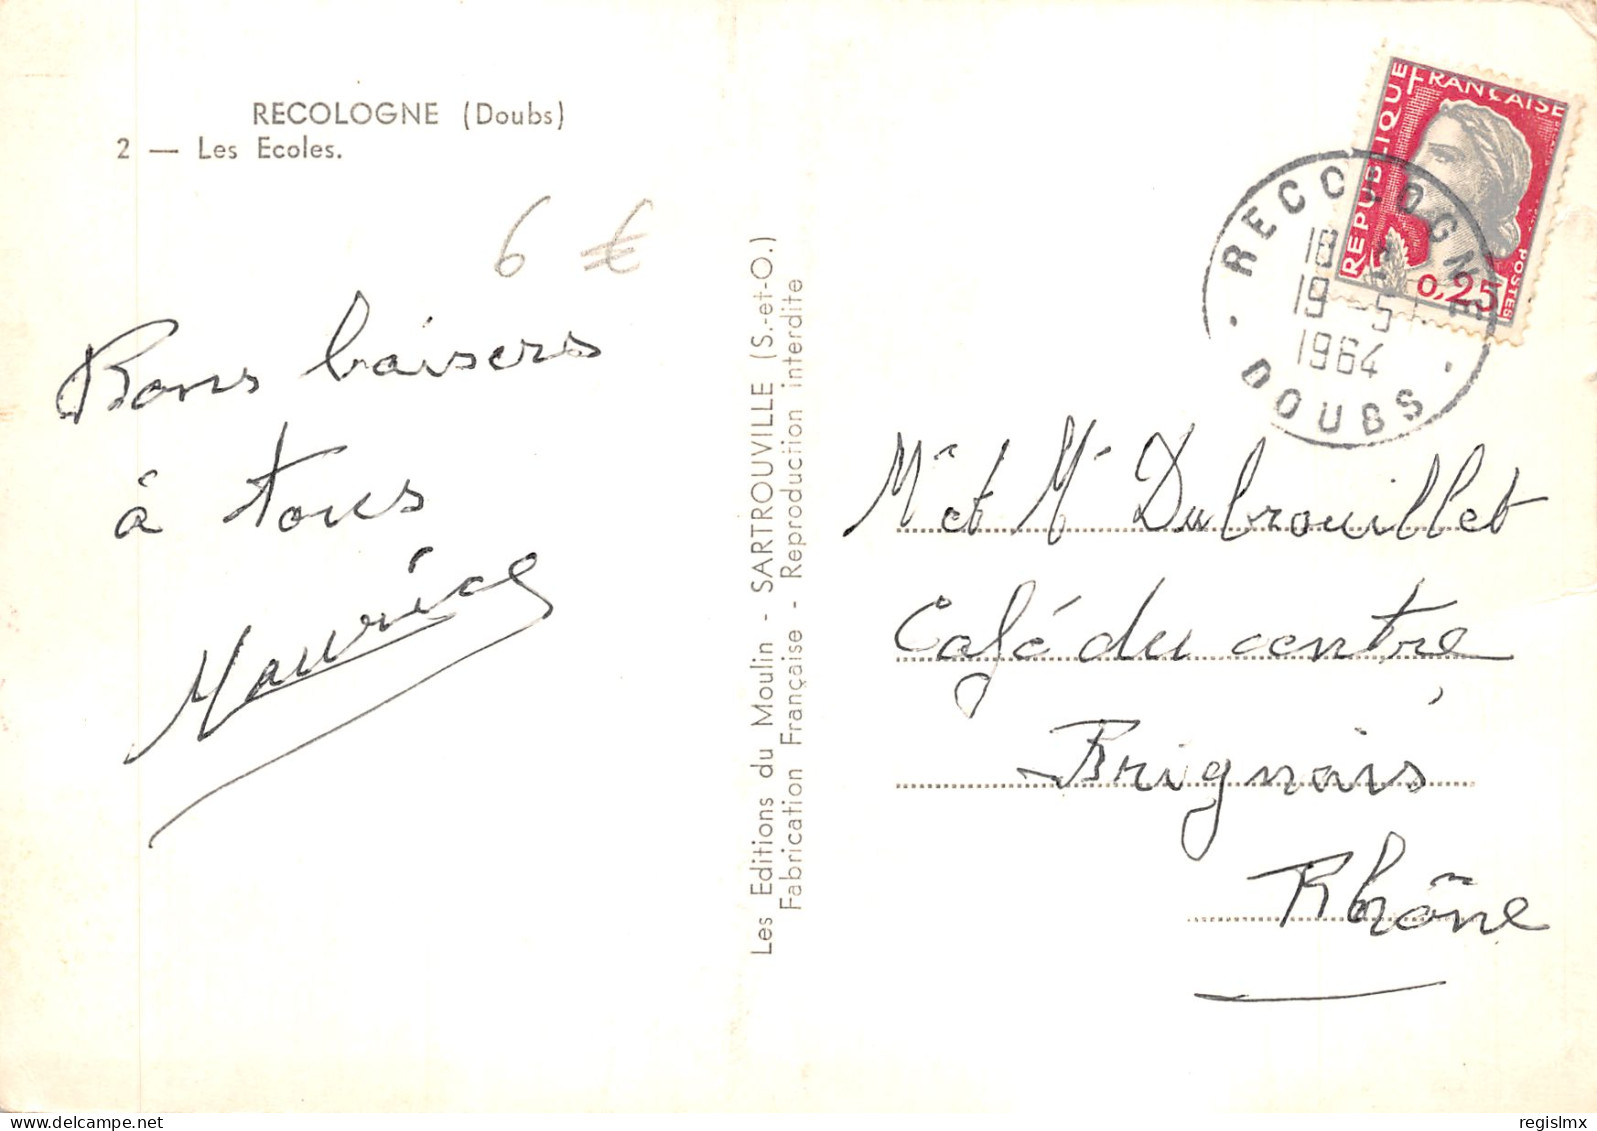 RECOLOGNE (Doubs)
2 — Les Ecoles.
6 €
Bons baisers
à tous
Maurice
Les Editions du Moulin - SARTROUVILLE (S.-et-O.)
Fabrication Française - Reproduction interdite
REPUBLIQUE FRANÇAISE
0,25
POSTES
RECOLOGNE
18 H
19 - 5
1964
DOUBS
Mr et Me Dubrouillet
Café du centre
Brignais
Rhône
regislmx